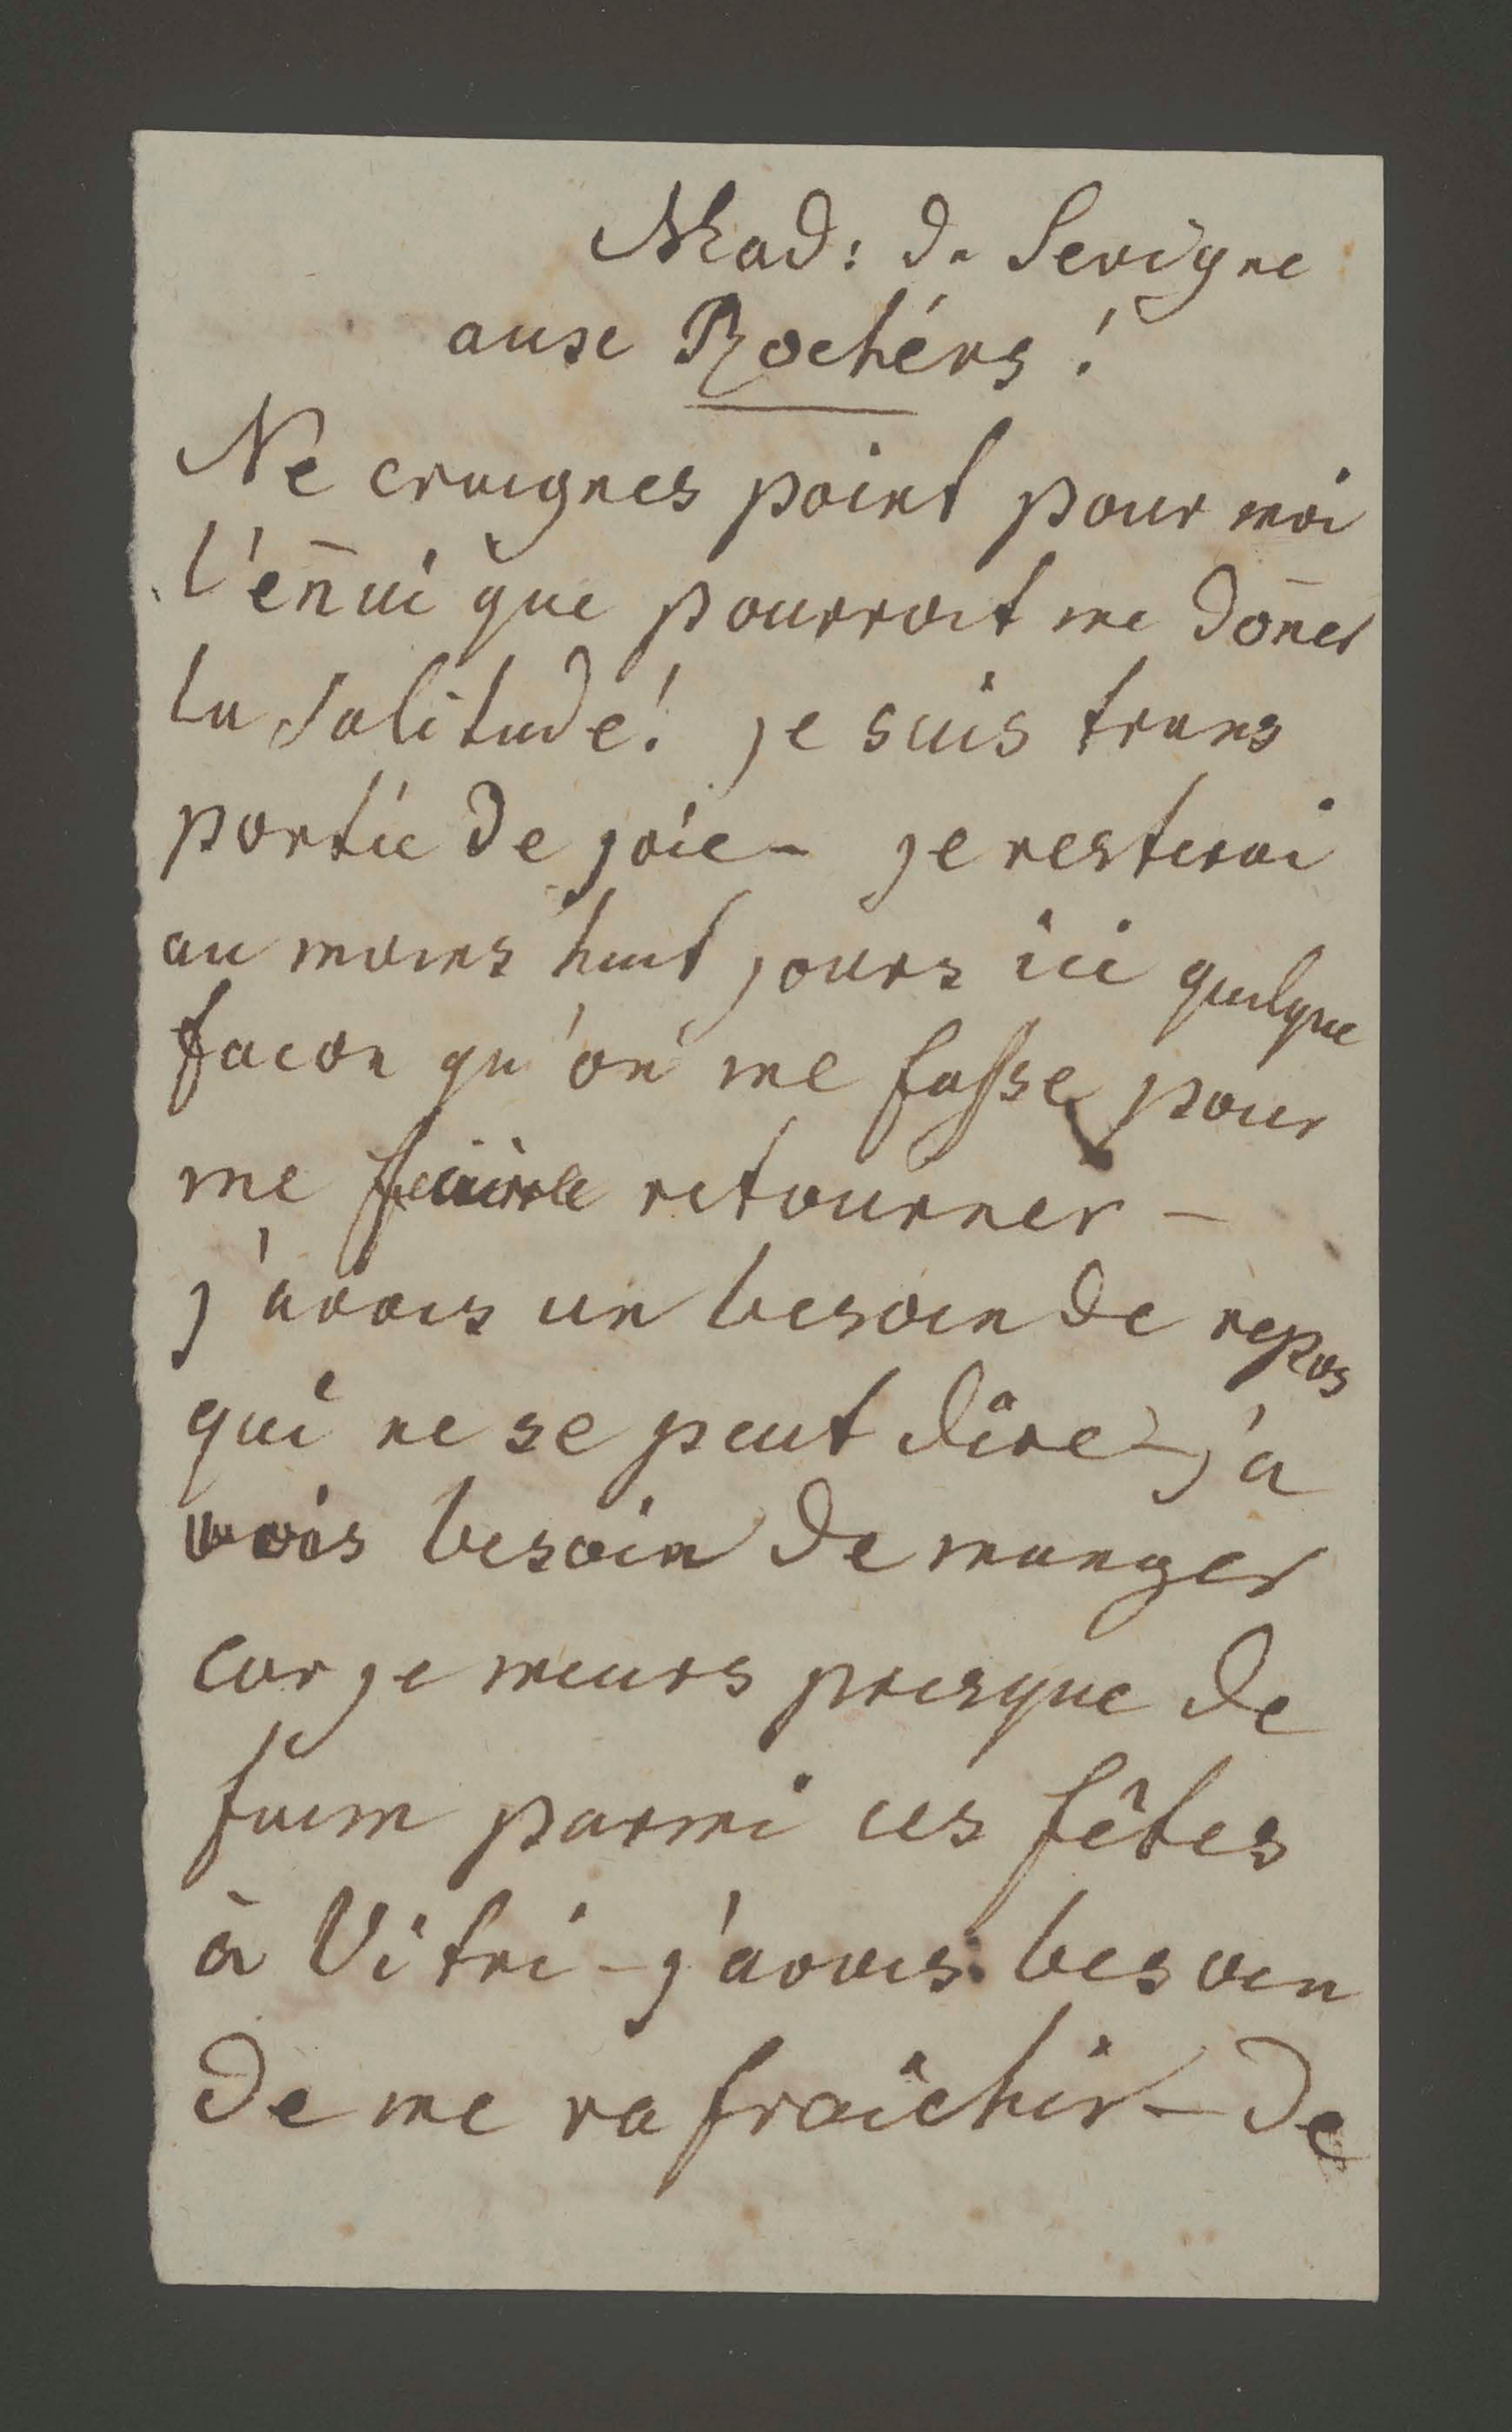 Mad: de Sevigne
auxe Rochérs!
Ne craignes point pour moi
l'en̄ui que pourroit me don̄er
la solitude! je suis trans
portée de joie - je resterai
au moins huit jours ici quelque
facon qu'on me fasse pour
me faire retourner -
j'avois un besoin de repos
qui ne se peut dire - j'a
vois besoin de manger
car je meurs presque de
faim parmi ces fêtes
à Vitri - j'avois besoin
de me rafraichir - de